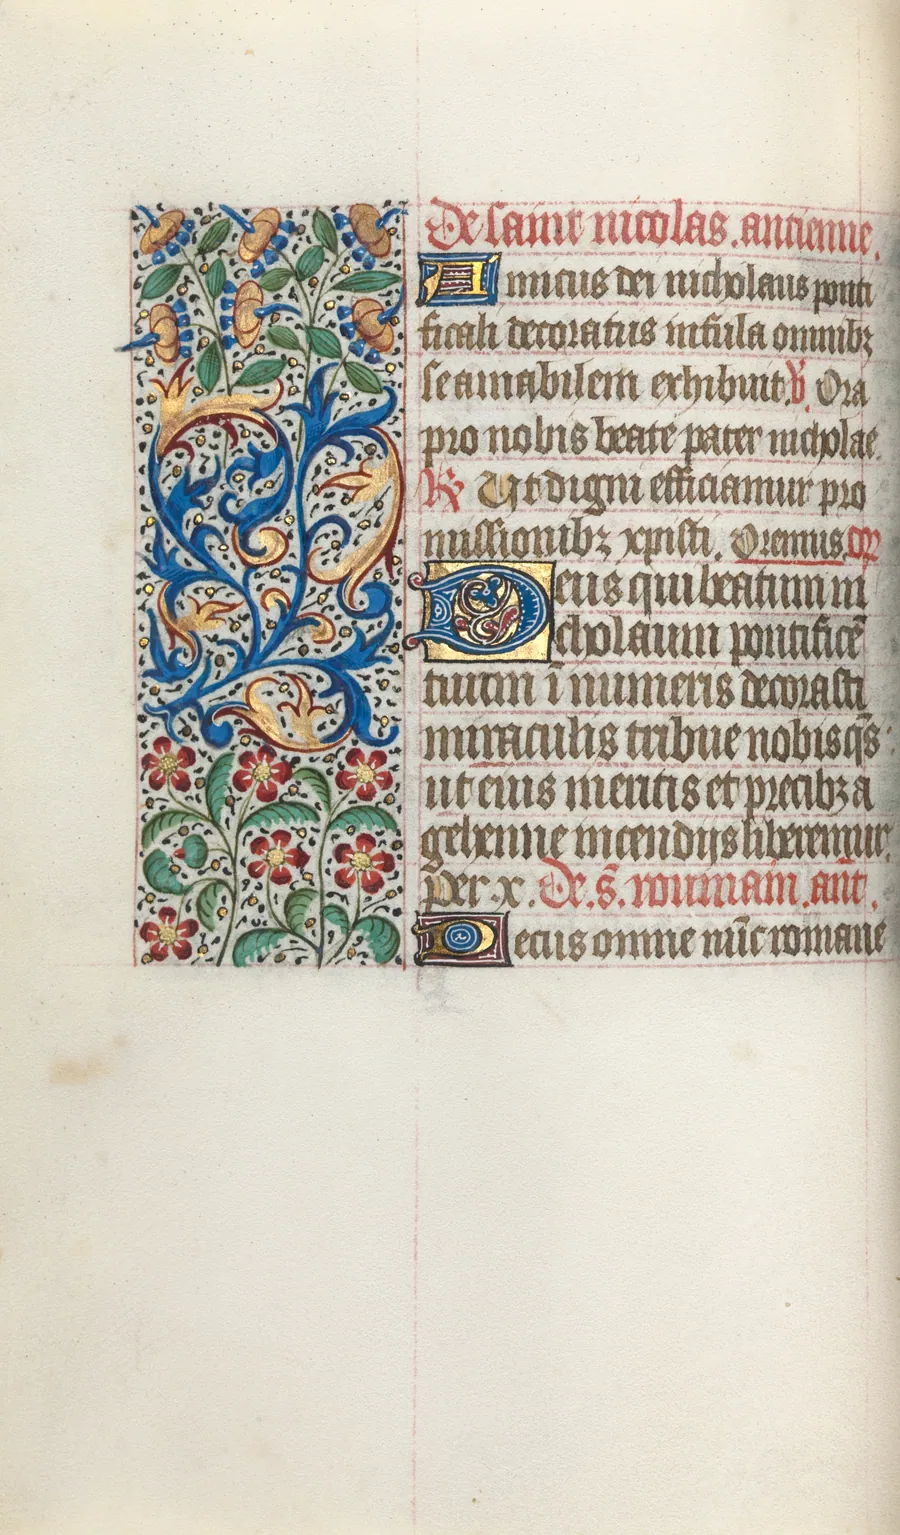 De saint nicolas. antienne.
Amicus dei nicholaus ponti
ficali decoratus infula omnibꝫ
se amabilem exhibuit. ℣. Ora
pro nobis beate pater nicholae.
℟ Ut digni efficiamur pro
missionibꝫ xpisti. Oremus. or̃
Deus qui beatum ni
cholaum pontificẽ
tuum ĩ numeris decorasti
miraculis tribue nobis q̃s
ut eius meritis et precibꝫ a
gehenne incendijs liberemur.
Per. x. De. s̃. roumain. ant̃.
Decus omne nũc romane